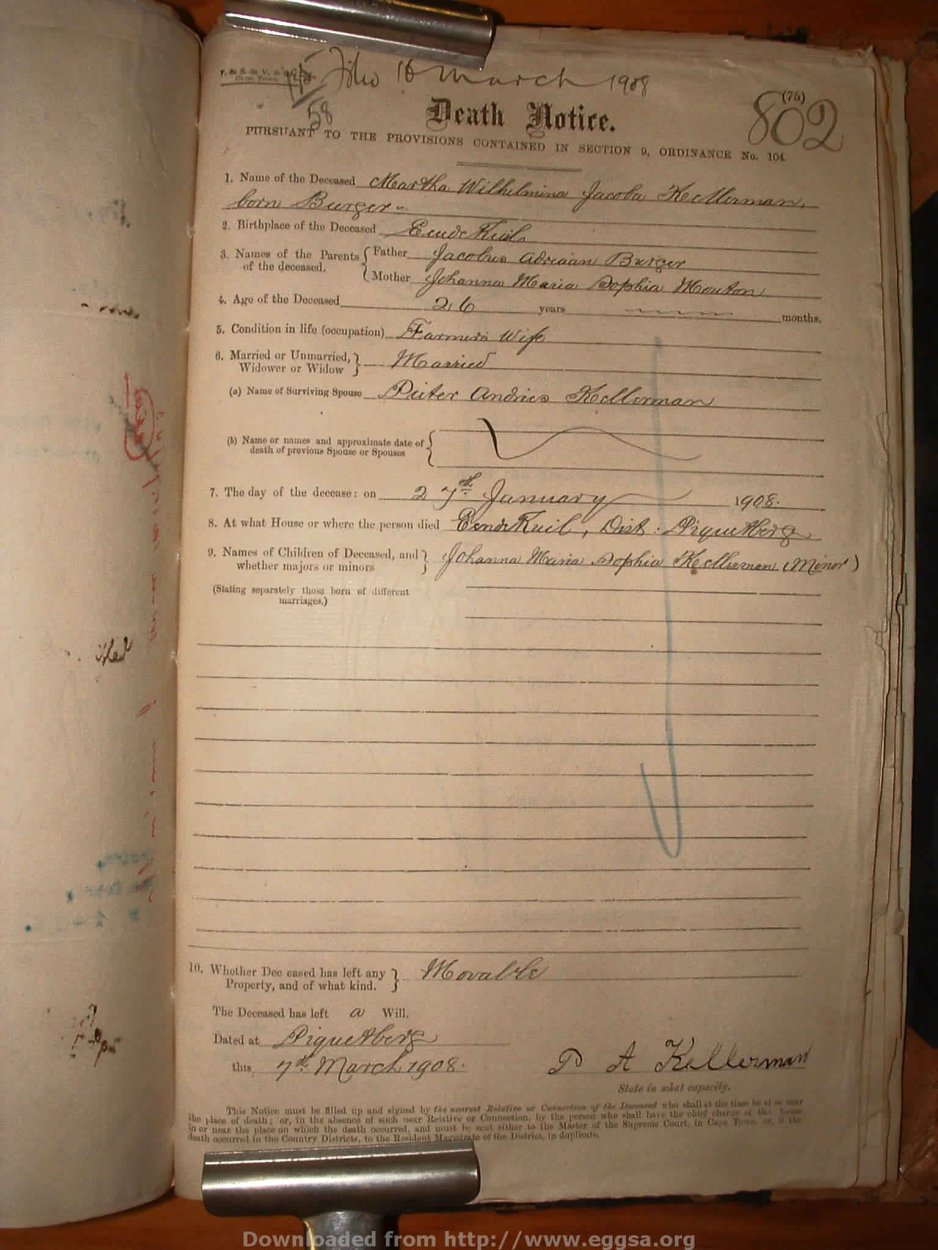 File 16 March 1908
58
(75)
802
Death Notice.
PURSUANT TO THE PROVISIONS CONTAINED IN SECTION 9, ORDINANCE No. 104
1. Name of the Deceased Martha Wilhelmina Jacoba Kellerman,
born Burger
2. Birthplace of the Deceased Eende Kuil
3. Names of the Parents of the deceased. Father Jacobus Adriaan Burger
Mother Johanna Maria Sophia Mouton
4. Age of the Deceased 26 years months.
5. Condition in life (occupation) Farmers Wife
6. Married or Unmarried, Widower or Widow Married
(a) Name of Surviving Spouse Pieter Andries Kellerman
(b) Name or names and approximate date of
death of previous Spouse or Spouses
7. The day of the decease: on 27th January 1908.
8. At what House or where the person died Eende Kuil, Dist: Piquetberg
9. Names of Children of Deceased, and whether majors or minors Johanna Maria Sophia Kellerman (Minor)
(Stating separately those born of different
marriages.)
10. Whether Deceased has left any Property, and of what kind. Movable
The Deceased has left a Will.
Dated at Piquetberg
this 7th March 1908.
P A Kellerman
State in what capacity.
This Notice must be filled up and signed by the nearest Relative or Connection of the Deceased who shall at the time be at or near
the place of death; or, in the absence of such near Relative or Connection, by the person who shall have the chief charge of the house
in or near the place on which the death occurred, and must be sent either to the Master of the Supreme Court, in Cape Town, or, if the
death occurred in the Country Districts, to the Resident Magistrate of the District, in duplicate.
Downloaded from http://www.eggsa.org